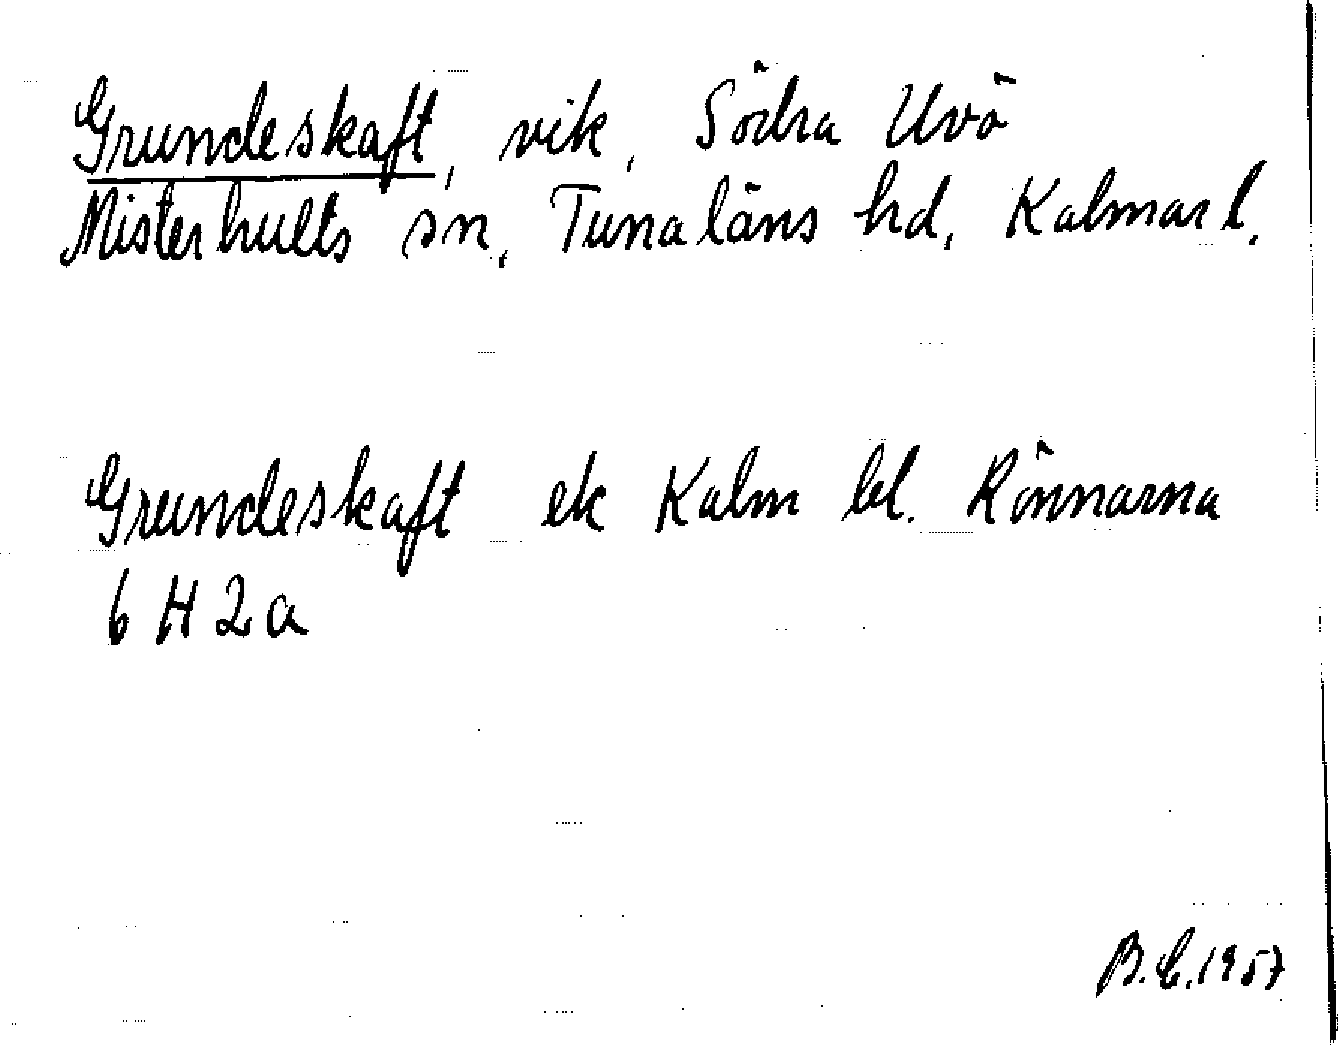 Grundeskaft, vik, Södra Uvö
Misterhults sn, Tunaläns hd, Kalmar l.
Grundeskaft ek Kalm bl. Rönnarna
6 H 2 a
B.E.1957